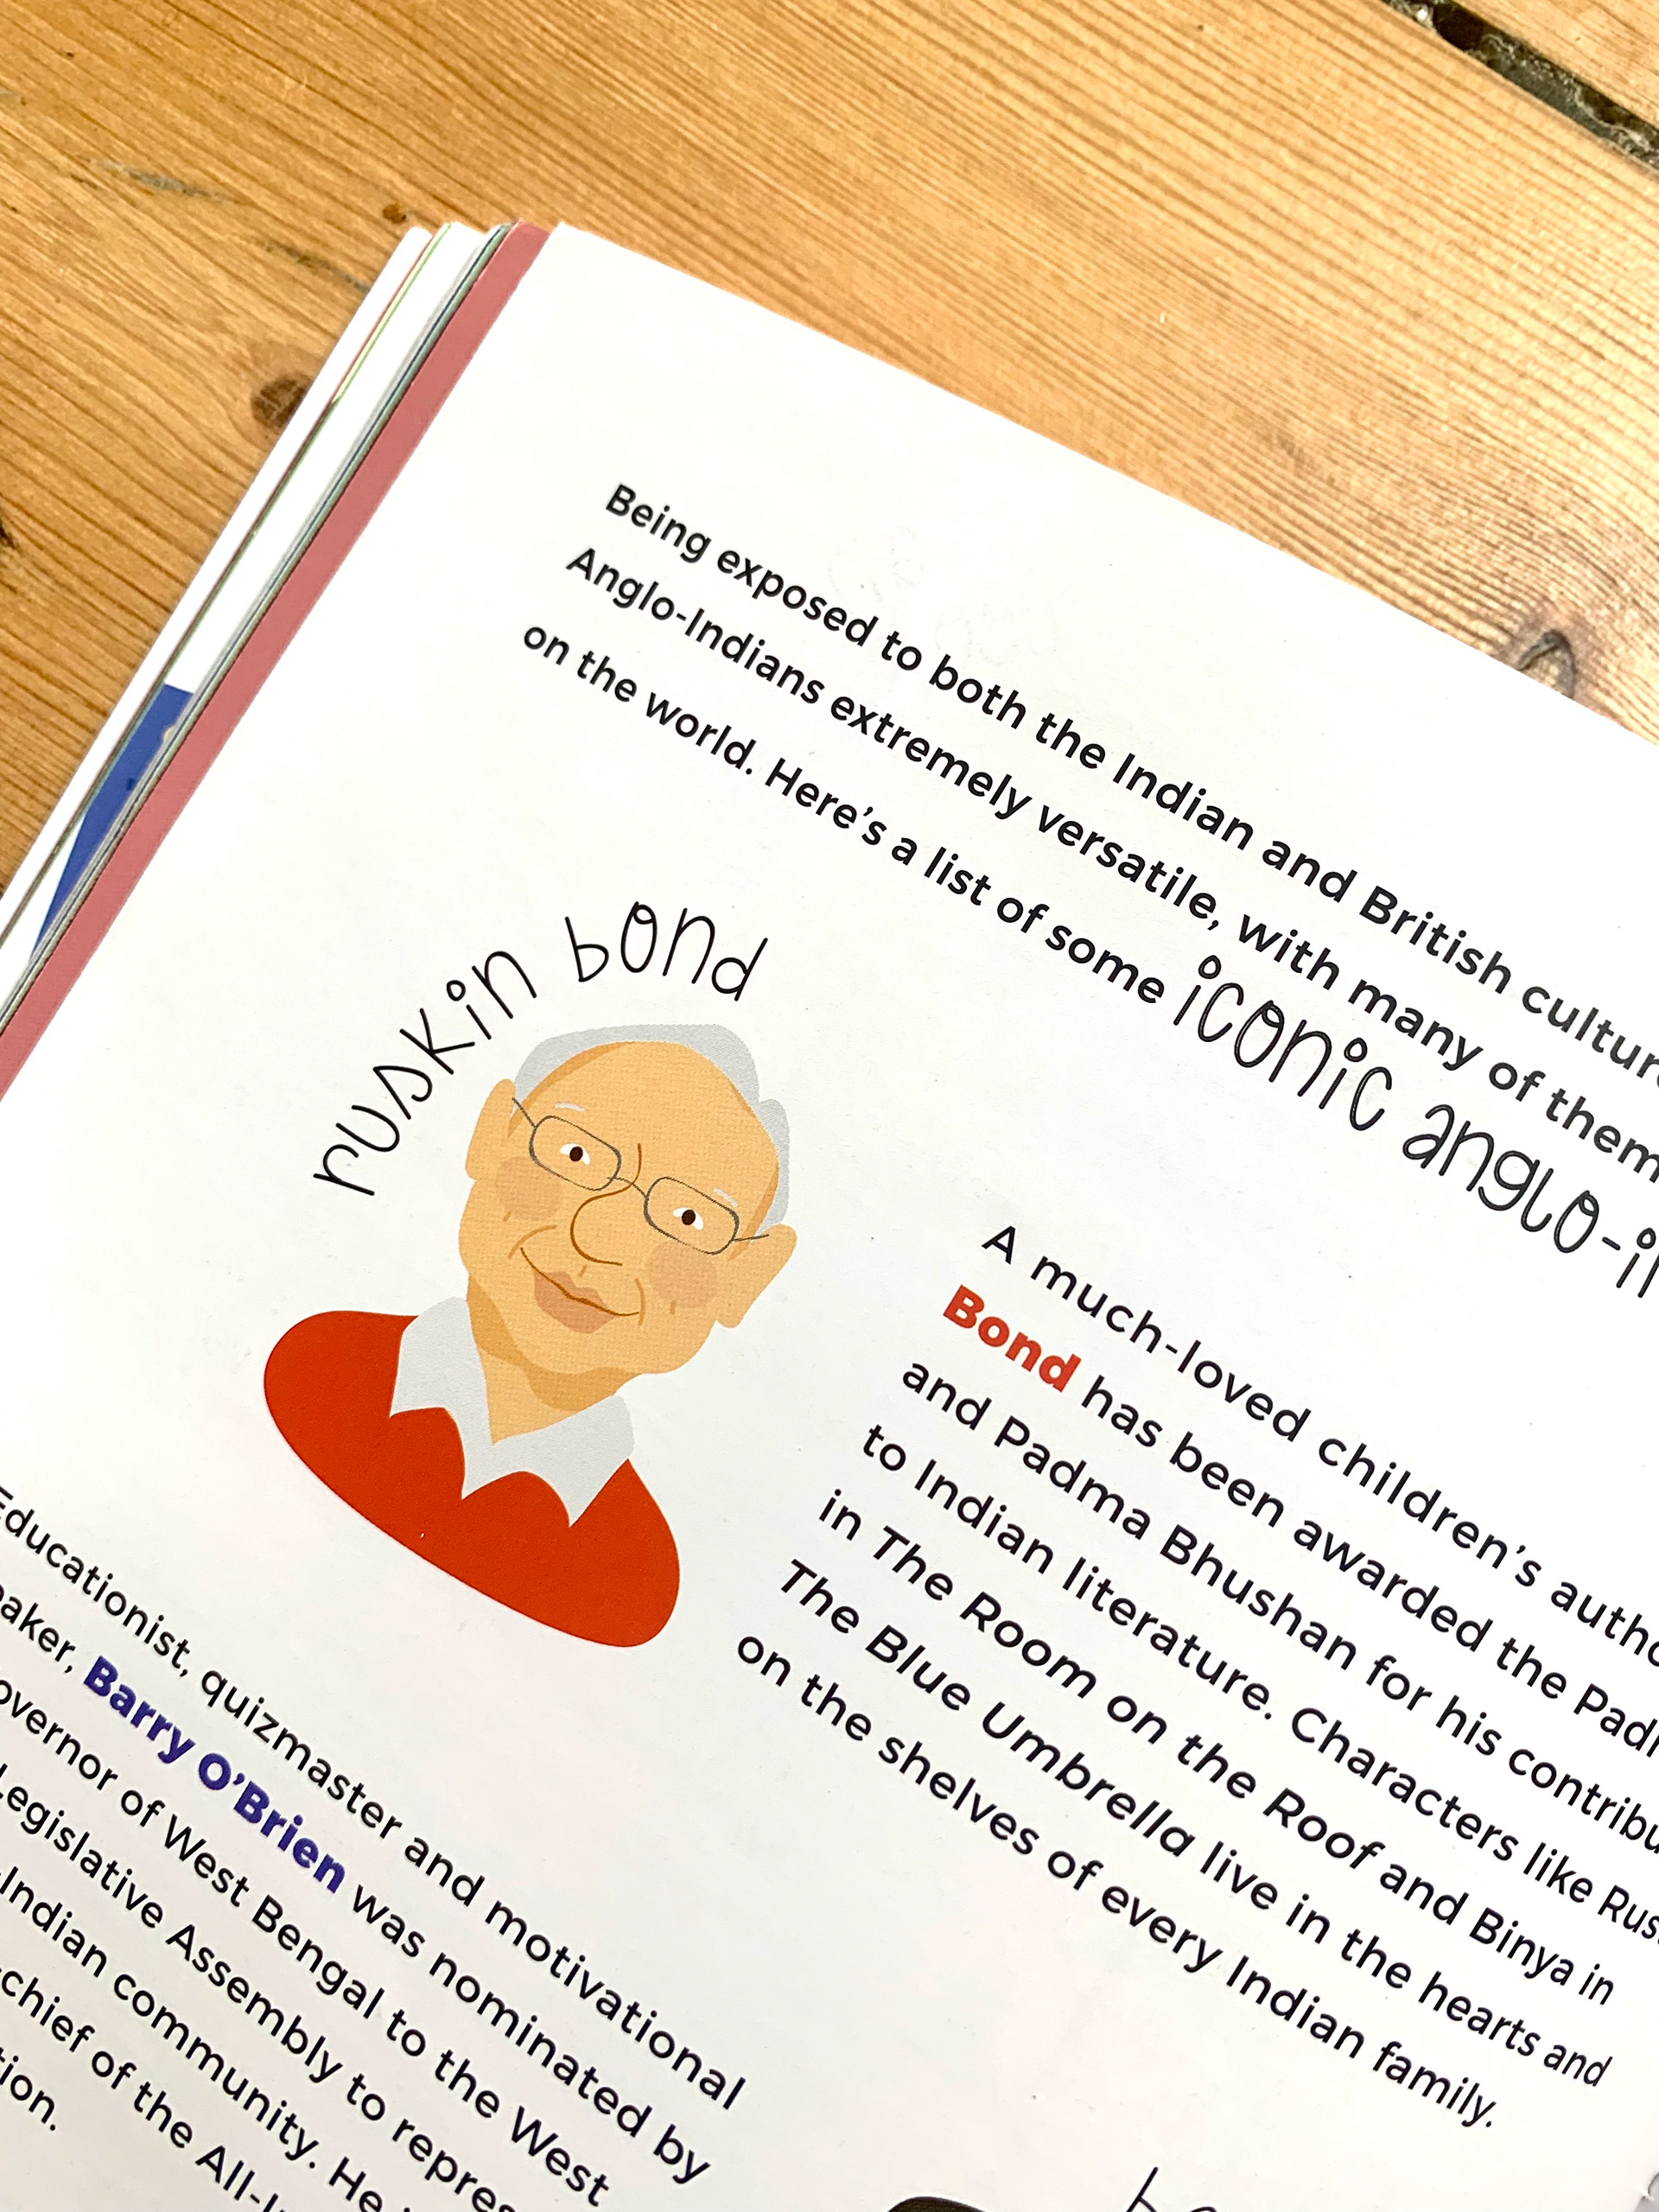 Being exposed to both the Indian and British
Anglo-Indians extremely versatile, with many of them
on the world. Here's a list of some iconic anglo-
ruskin bond
A much-loved children's
Bond has been awarded the
and Padma Bhushan for his
to Indian literature. Characters like
in The Room on the Roof and Binya in
The Blue Umbrella live in the hearts and
on the shelves of every Indian family.
Educationist, quizmaster and motivational
Barry O'Brien was nominated by
of West Bengal to the West
Legislative Assembly to
Indian community. He
chief of the